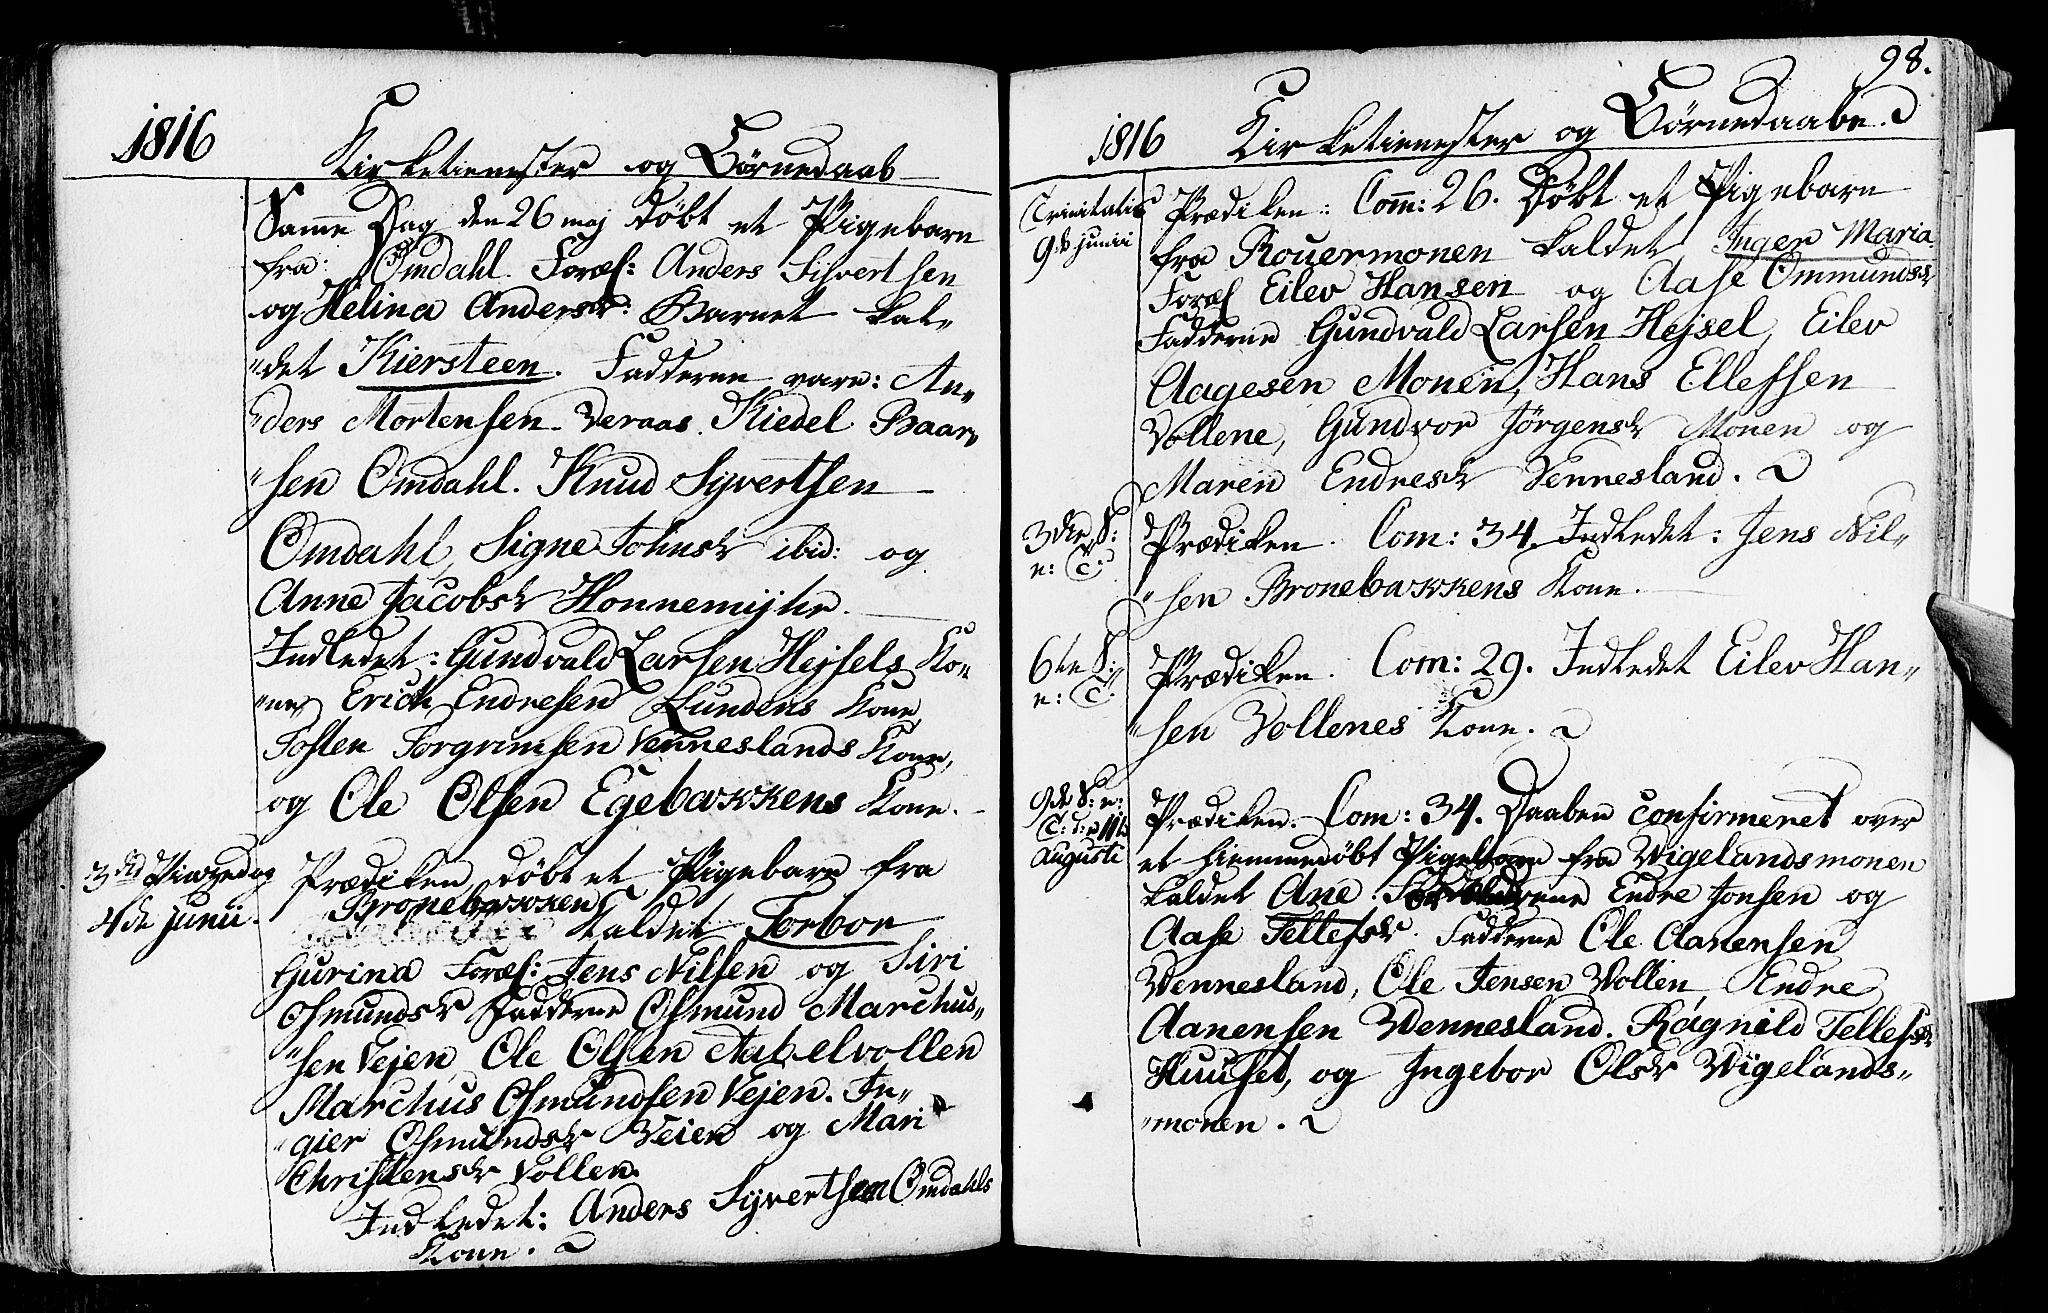 1816
Kirketienester og Börnedaab
Samme Dag den 26 maj döbt et Pigebarn
fra: Omdahl. Foræl: Anders Sijvertsen
og Helina Andersdr: Barnet kal„
„det Kiersteen. Fadderne vare: An„
„ders Mortensen Veraas. Kiedel Baar„
„sen Omdahl. Knud Sijvertsen
Omdahl, Signe Johnsdr ibid: og
Anne Jacobsdr Honnemijhr.
Indledet: Gundvald Larsen Hejsels Ko„
„ne, Erich Endresen Lundens Kone
Tosten Torgrimsen Venneslands Kone,
og Ole Olsen Egebakkens Kone.
3die Pintzedag
4de junii.
Prædiken, döbt et Pigebarn fra
Bronebakken
kaldet Torbor
Gurina Foræl: Jens Nilsen og Siri
Osmundsdr Fadderne Osmund Marchus„
„sen Vejen, Ole Olsen Aakelvollen
Marchus Osmundsen Vejen. In„
„gier Osmundsdr Veien og Mari
Christensdr Vollen.
Indledet: Anders Sijvertsen Omdahls
Kone.
98.
1816 Kirketienester og Börnedaabe.
Trinitatis
9de junii
Prædiken: Com̄: 26. Döbt et Pigebarn
fra Rouermonen kaldet Inger Maria
Foræl Eilev Hansen og Aase Ommundsdr
Fadderne Gundvald Larsen Hejsel, Eilev
Aagesen Monen, Hans Ellefsen
Vollene, Gundvor Jörgensdr Monen og
Maren Endresdr Vennesland.
3die S:
n: T:
Prædiken. Com: 34. Indledet: Jens Nil„
„sen Bronebakkens Kone.
6te S:
n: T:
Prædiken. Com: 29. Indledet Eilev Han„
„sen Vollenes Kone.
9de S: n:
T: d: 11te
Augusti
Prædiken. Com: 34. Daaben confirmeret over
et hiemmedöbt Pigebarn fra Wigelandsmonen
kaldet Ane. Forældrene Endre Jonsen og
Aase Tellefsdr. Fadderne Ole Aanensen
Vennesland, Ole Jensen Vollen Endre
Aanensen Vennesland. Ragnild Tellefsdr
Huuset, og Ingebor Olsdr Wigelands„
„monen.